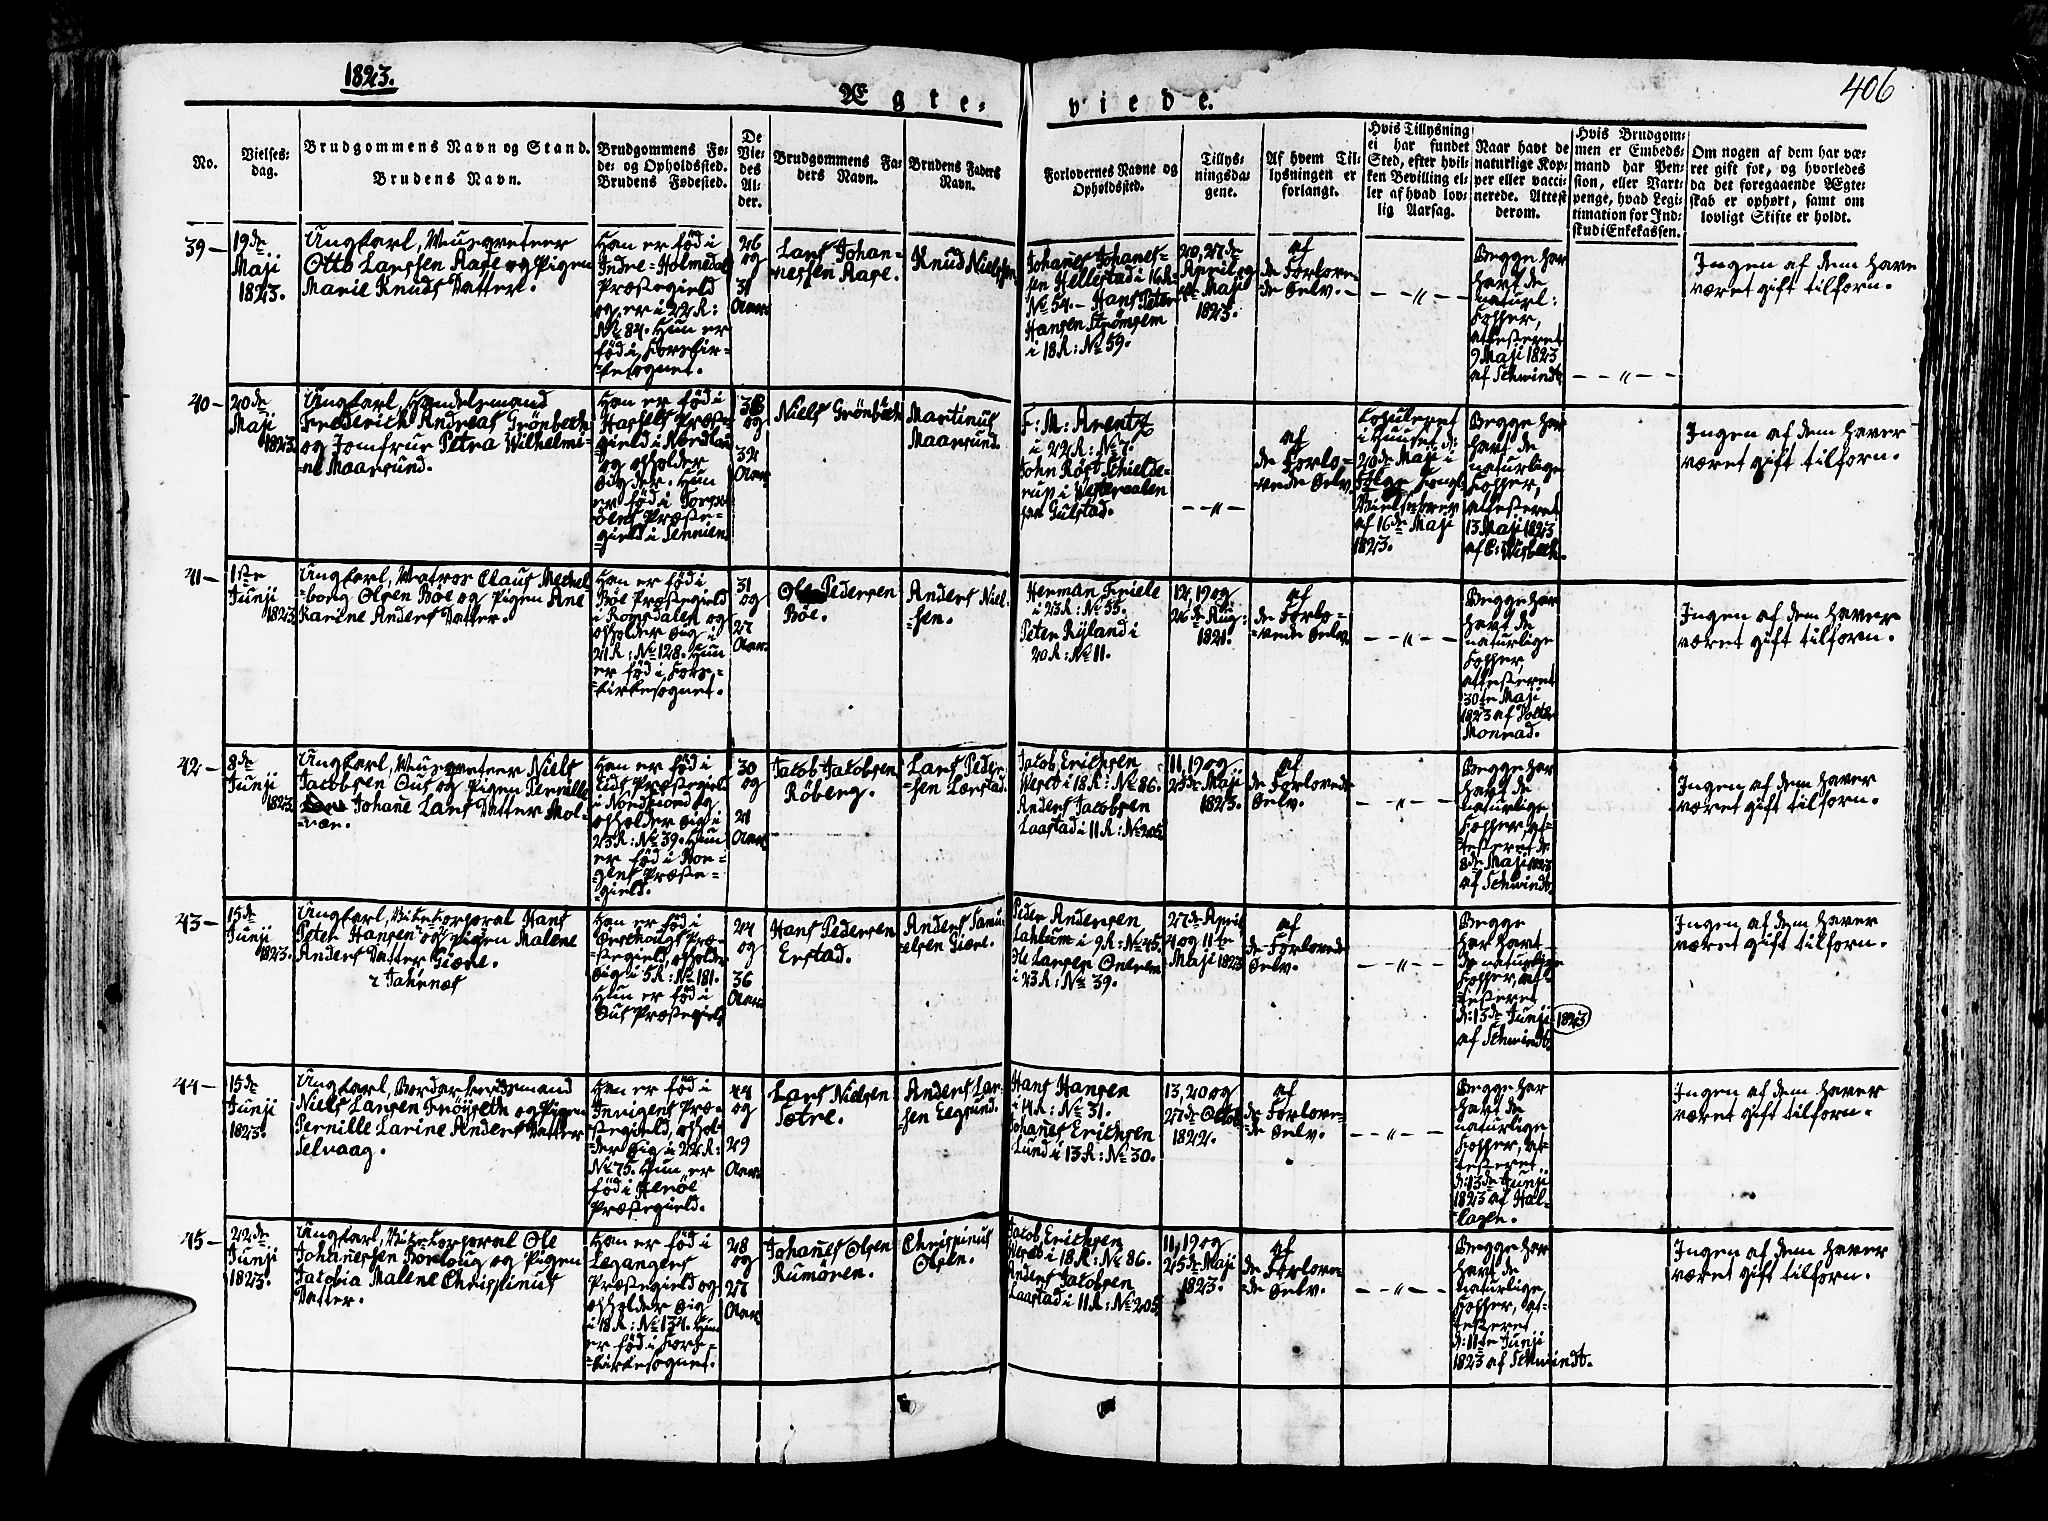 1823.
406
Ægte-
viede.
No.
Vielses-
dag.
Brudgommens Navn og Stand.
Brudens Navn.
Brudgommens Fø-
de- og Opholdssted.
Brudens Fødested.
De
Vie-
des
Al-
der.
Brudgommens Fa-
ders Navn.
Brudens Faders
Navn.
Forlovernes Navne og
Opholdssted.
Tillys-
ningsda-
gene.
Af hvem Til-
lysningen er
forlangt.
Hvis Tillysning
ei har fundet
Sted, efter hvil-
ken Bevilling el-
ler af hvad lov-
lig Aarsag.
Naar havt de
naturlige Kop-
per eller vacci-
nerede. Attest
derom.
Hvis Brudgom-
men er Embeds-
mand har Pen-
sion, eller Vart-
penge, hvad Legi-
timation for Ind-
skud i Enkekassen.
Om nogen af dem har væ-
ret gift før, og hvorledes
da det foregaaende Ægte-
skab er ophørt, samt om
lovligt Skifte er holdt.
39-
19de
Maji
1823.
Ungkarl, Musqveteer
Otto Larssen Aase og Pigen
Marie Knuds Datter.
Han er föd i
Indre-Holmedal
Præstegield
og er i 22 R:
No 84. Hun er
föd i Korskir-
-kesognet.
26
og
31
Aar.
Lars Johan-
nessen Aase.
Knud Nielssen
Johanes Johanes-
sen Hellestad i 16 R.
No 54. - Hans Peter
Hansen Strömsem
i 18 R: No 59.
20, 27de
April og
Maji
1823.
af
de Forlove-
de Selv.
- - " - -
Begge har
havt de
naturl:
Kopper,
attesteret
9 Maji 1823
af Schwindt.
- - " - -
Ingen af dem have
været gift tilforn.
40-
20de
Maji
1823.
Ungkarl, Handelsmand
Frederich Andreas Grönbech
og Jomfrue Petra Wilhelmi-
-ne Maarsund.
Han er föd i
Præste-
gield i Nordland
og opholder
sig der. Hun
er föd i
Præste-
-gield i Sennien
38
og
32
Aar.
Niels Grönbech
Martinus
Maarsund.
F: M: Arentz
i 22 R: No 7.
John Röst Schielde-
rup i Westeraalen
for Gulstad.
- - " - -
af
de Forlo-
vede Selv.
Copuleret
i Huuset d:
20de Maji i
Fölge Kongl:
Vielsebrev
af 16de Maji
1823.
Begge har
havt de
naturlige
Kopper,
attesteret
13 Maji 1823
af C: Wisbech.
Ingen af dem haver
været gift tilforn.
41-
1ste
Junji
1823.
Ungkarl, Matros Claus Mechel-
-borg Olsen Böe og Pigen Ane
Karine Anders Datter.
Han er föd i
Böe Præstegield
i Romsdalen og
opholder sig i
21 R: No 128. Hun
er föd i Kors-
-kirkesognet.
31
og
27
Aar.
Ole Pedersen
Böe.
Anders Niel-
-sen.
Herman Friele
i 23 R: No 55.
Peter Ryland i
20 R: No 11.
12, 19 og
26de Aug:
1821.
af
de Forlo-
-vede Selv
- - " - -
Begge har
havt de
naturlige
Kopper,
attesteret
30te Maji
1823 af Polter
Monrad.
Ingen af dem haver
været gift tilforn.
42-
8de
Junji
1823.
Ungkarl, Musqveteer Niels
Jacobsen Ous og Pigen Pernille
Johane Lars Datter Mol-
-vær.
Han er föd i
Eids Præstegield
i Nordfiord og
opholder sig i
23 R: No 39. Hun
er föd i Bor-
-gens Præste-
-gield.
30
og
21
Aar.
Jacob Jacobsen
Röberg.
Lars Peder-
-sen Lærstad.
Jacob Erichsen
Wereb i 18 R: No 86.
Anders Jacobsen
Laastad i 11 R: No 205
11, 19 og
25de Maji
1823.
af
de Forlovede
Selv.
- - " - -
Begge har
havt de
naturlige
Kopper, at-
-testeret de
8de Maji 1823
af Schwindt.
Ingen af dem haver
været gift tilforn.
43-
15de
Junji
1823.
Ungkarl, Vicecorporal Hans
Peter Hansen og Pigen Malene
Anders Datter Giære.
Han er föd i
Præ-
-stegield, opholder
sig i 5 R: No 181.
Hun er föd i
Ous Præstegield
24
og
36
Aar.
Hans Pedersen
Erstad.
Anders Samu-
-elsen Giære.
Peder Andersen
Lahlum i 9 R: No 45.
Ole Larsen
i 23 R: No 39.
27de April
4 og 11te
Maji 1823
af
de Forlovede
Selv.
- - " - -
Begge
har havt
de naturlige
Kopper, at-
-testeret
d: 13de Junji
af Schwindt.
1823
Ingen af dem haver
været gift tilforn.
44-
15de
Junji
1823.
Ungkarl, Bordarbeidsmand
Niels Larsen Fröyseth og Pigen
Pernille Larine Anders Datter
Selvaag.
Han er föd i
Præ-
-stegield, ophol-
der sig i 22 R:
No 75. Hun er
föd i Heröe
Præstegield.
44
og
29
Aar.
Lars Nielsen
Sætre.
Anders Lar-
-sen Eegsund.
Hans Hansen
i 4 R: No 31.
Johanes Erichsen
Lund i 13 R: No 30.
13, 20 og
27de Octob
1822.
af
de Forlove-
-de Selv.
- - " - -
Begge har
havt de
naturlige
Kopper, at-
testeret
d: 13de Junji
1823 af Hal-
-lager.
Ingen af dem haver
været gift tilforn.
45-
22de
Junji
1823.
Ungkarl, Vicecorporal Ole
Johanessen og Pigen
Jacobia Malene Chrispinus
Datter.
Han er föd i
Leganger
Præstegield og
opholder sig
i 18 R: No 134. Hun
er föd i Kors-
-kirkesognet.
28
og
27
Aar.
Johanes Olsen
Rumören.
Chrispinus
Olsen.
Jacob Erichsen
Wereb i 18 R: No 86.
Anders Jacobsen
Laastad i 11 R: No 205
11, 19 og
25de Maji
1823.
af
de Forlove-
-de Selv.
- - " - -
Begge har
havt de
naturlige
Kopper, at-
testeret
d: 11te Junji
1823 af Schwindt.
Ingen af dem haver
været gift tilforn.